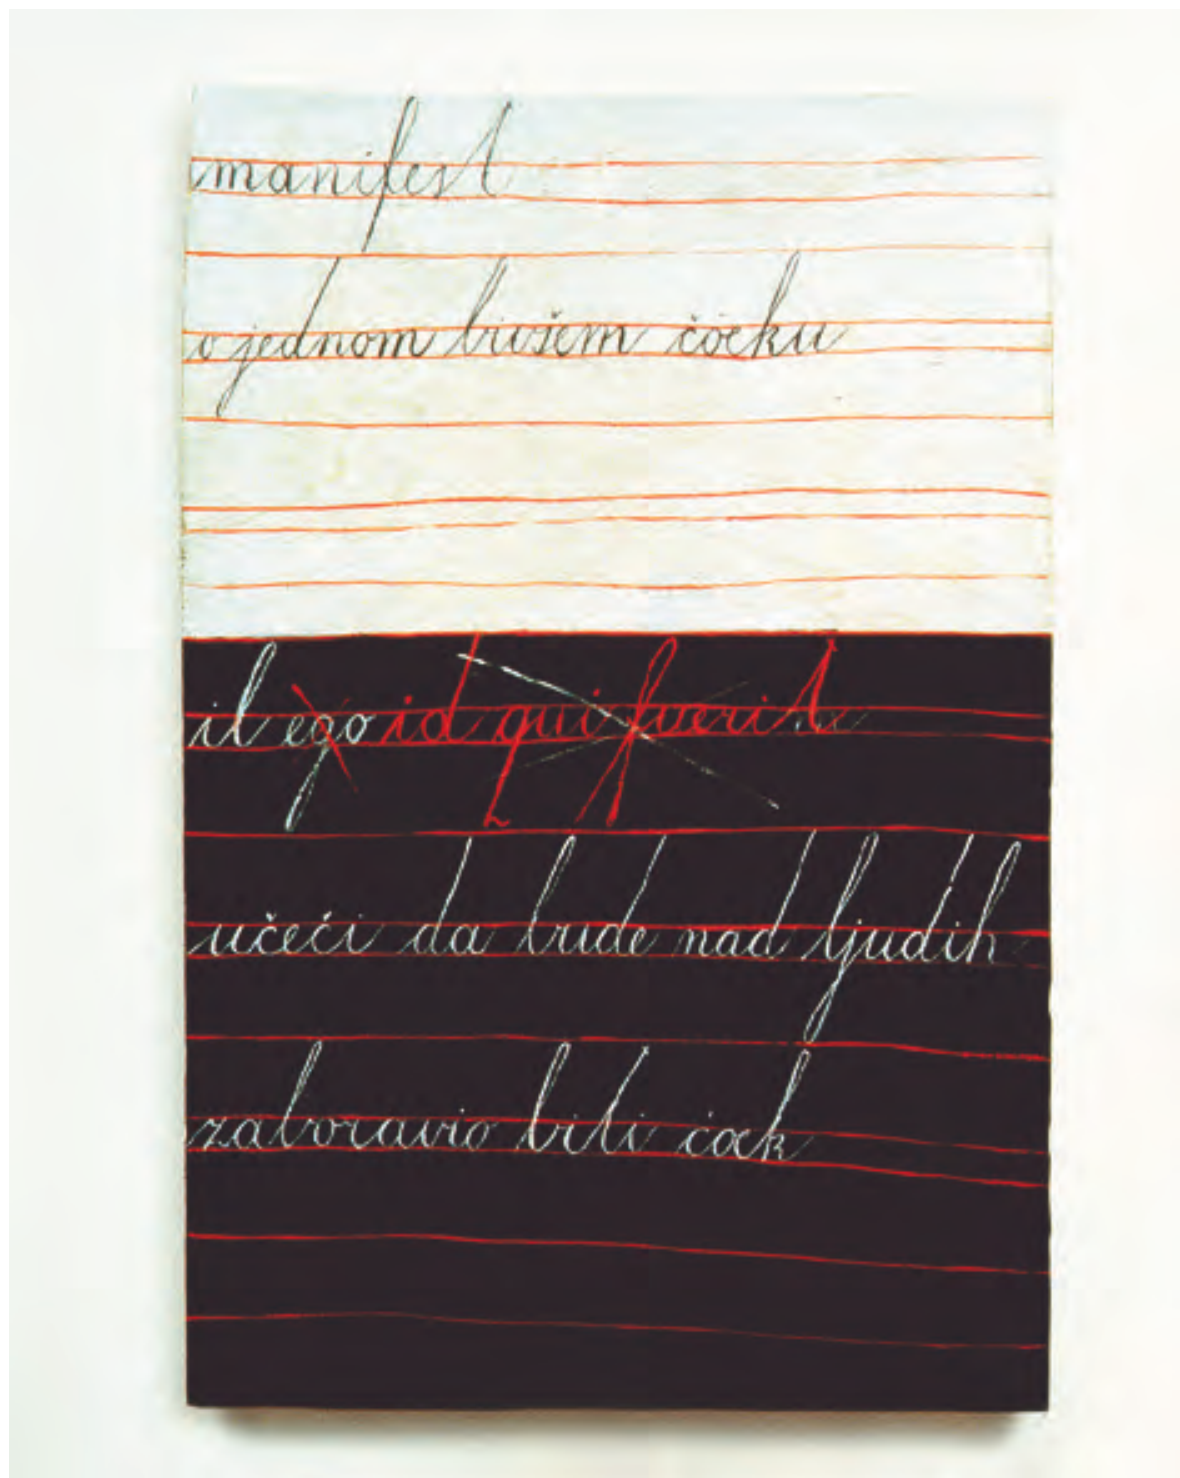 manifest
o jednom bivšem čöcku
il ego id qui fverit
učeći da bude nad ljudih
zaboravio biti čöck